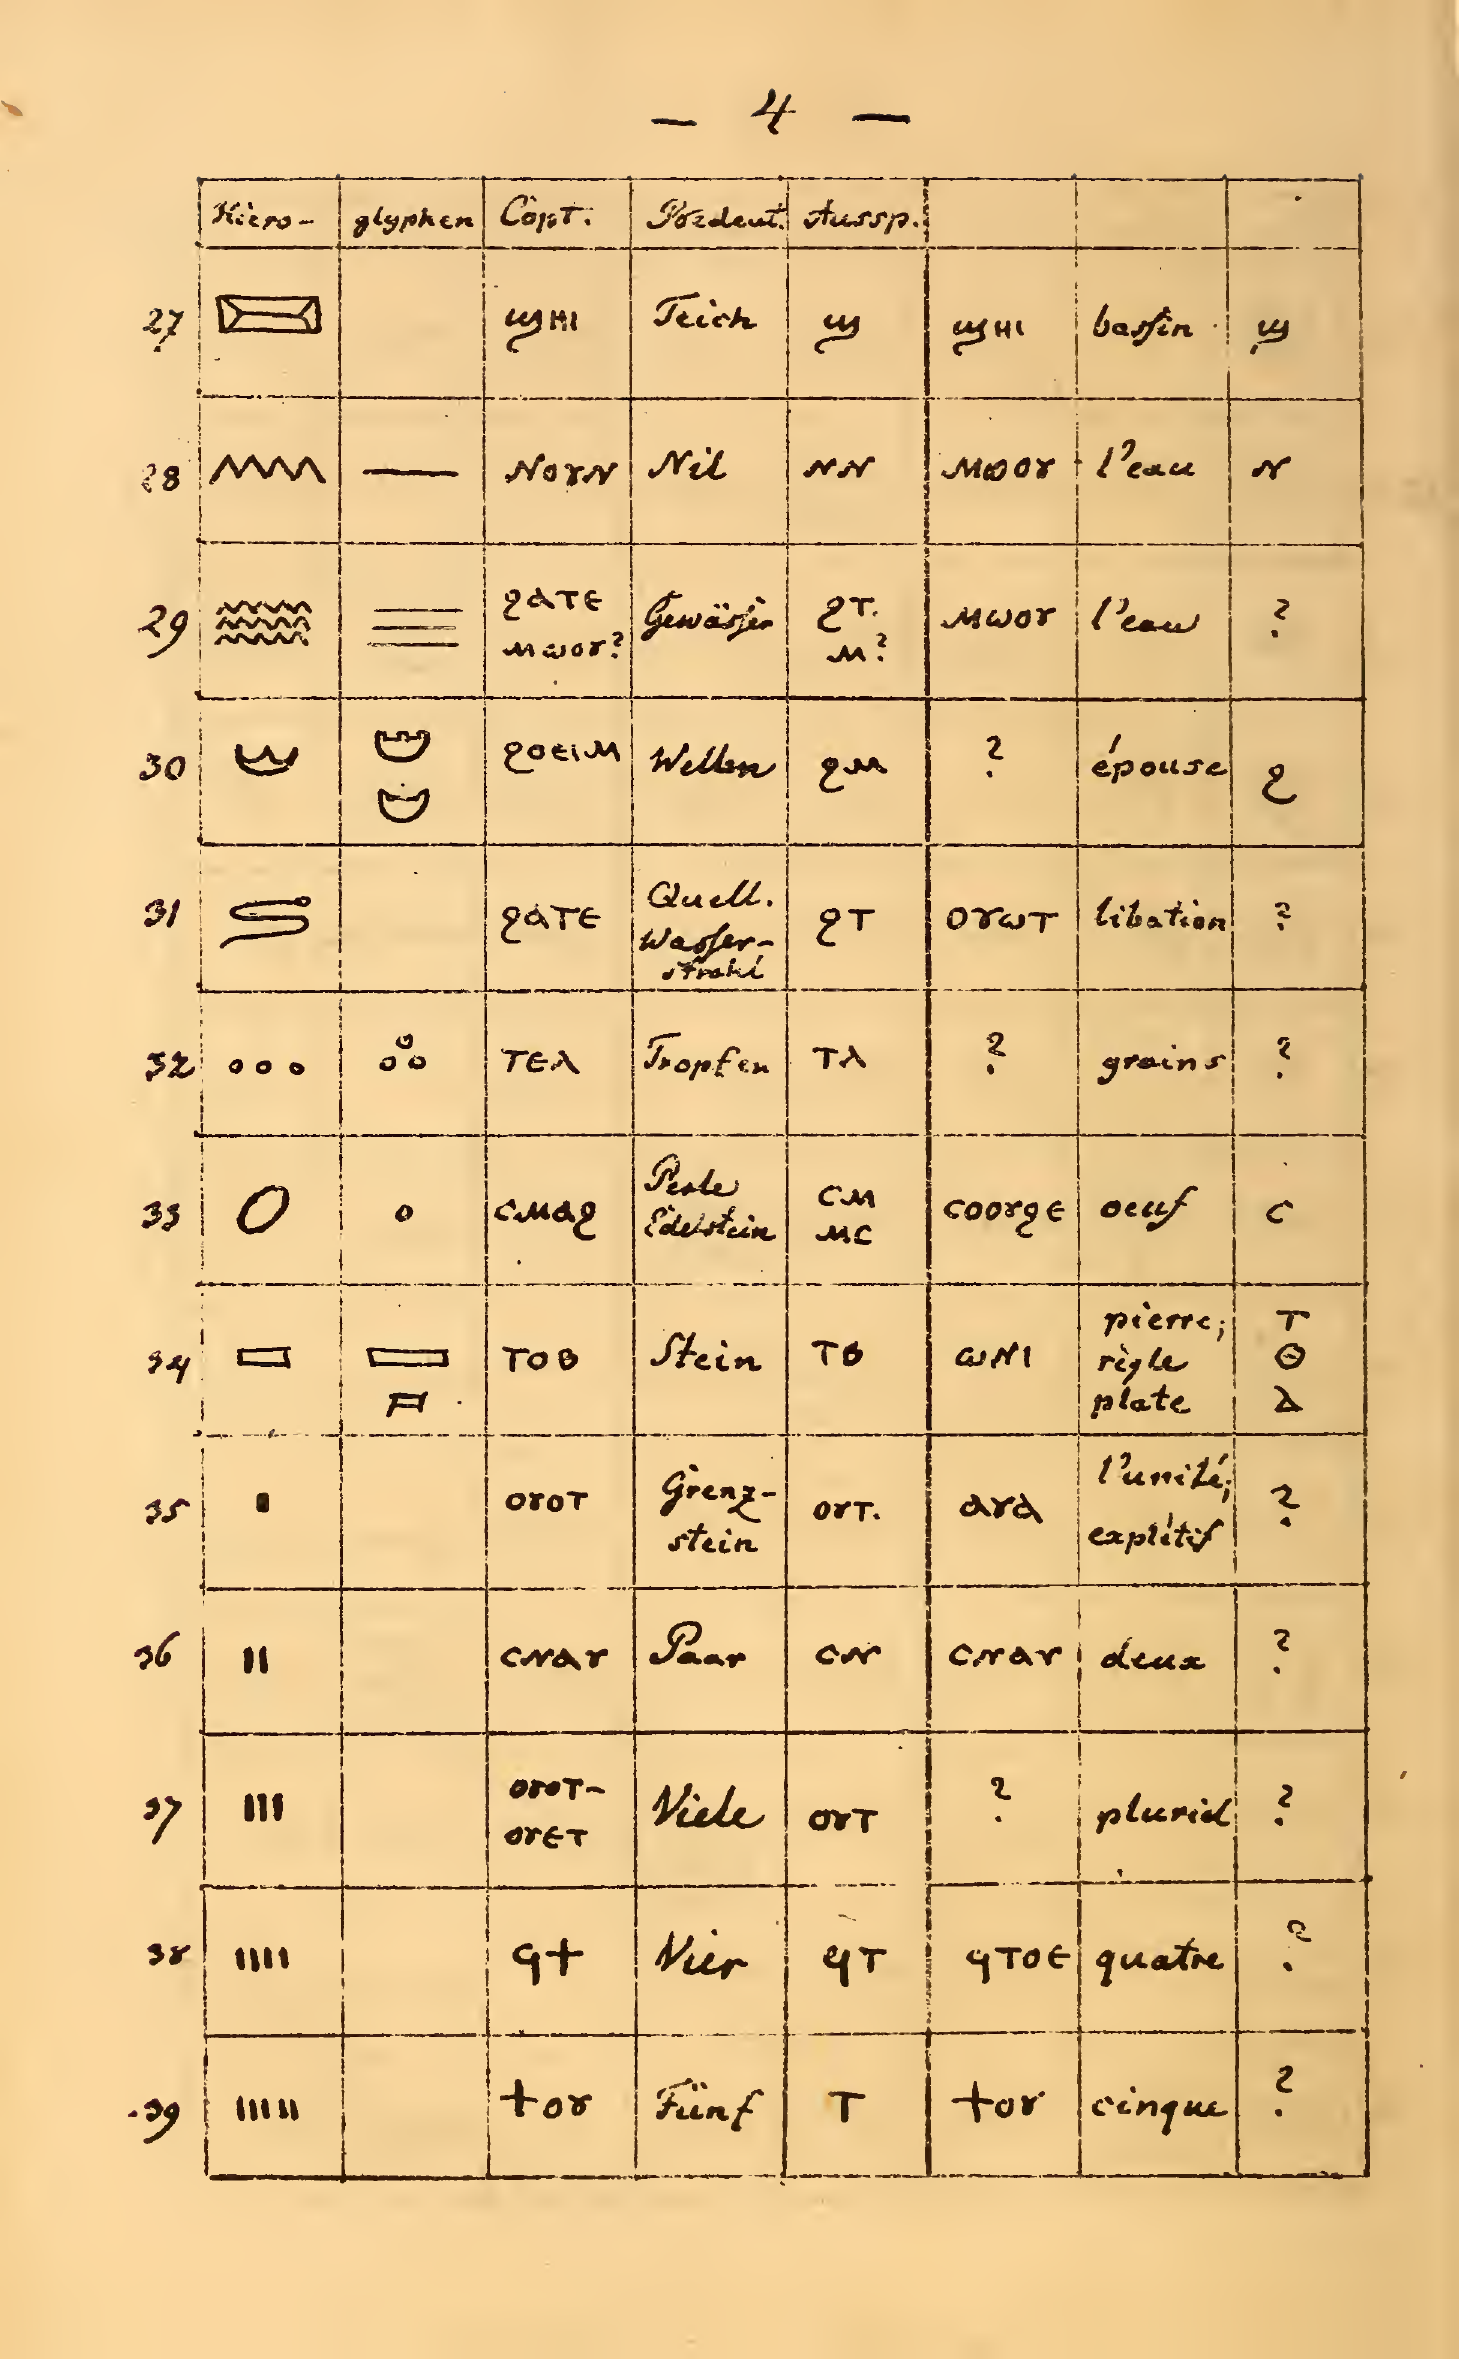 — 4 —
Hiero- glyphen Copt. Bedeut. Aussp.
27 ϣHI Teich ϣ ϣHI bassin ϣ
28 ΝΟΥΝ Nil ΝΝ ΜΩΟΥ l'eau Ν
29 ϩⲁⲧⲉ Gewässer ϩⲧ. ⲙⲱⲟⲩ l'eau ?
ⲙⲱⲟⲩ? ⲙ?
30 ϩⲟⲉⲓⲙ Wellen ϩⲙ ? épouse ϩ
31 ϩⲁⲧⲉ Quell. Wasser- strahl ϩⲧ ⲟⲩⲱⲧ libation ?
32 ⲧⲉⲗ Tropfen ⲧⲗ ? grains ?
33 ⲥⲙⲁϩ Perle Edelstein ⲥⲙ ⲙⲥ ⲥⲟⲟⲩϩⲉ oeuf ⲥ
34 ⲧⲟⲃ Stein ⲧⲃ ⲱⲛⲓ pierre; règle plate ⲧ ⲑ ⲇ
35 ⲟⲩⲟⲧ Grenz- stein ⲟⲩⲧ. ⲁⲩⲁ l'unité; explétif ?
36 ⲥⲛⲁⲩ Paar ⲥⲛ ⲥⲛⲁⲩ deux ?
37 ⲟⲩⲟⲧ- ⲟⲩⲉⲧ Viele ⲟⲩⲧ ? pluriel ?
38 ϥϯ Vier ϥⲧ ϥⲧⲟⲉ quatre ?
39 ϯⲟⲩ Fünf ⲧ ϯⲟⲩ cinque ?